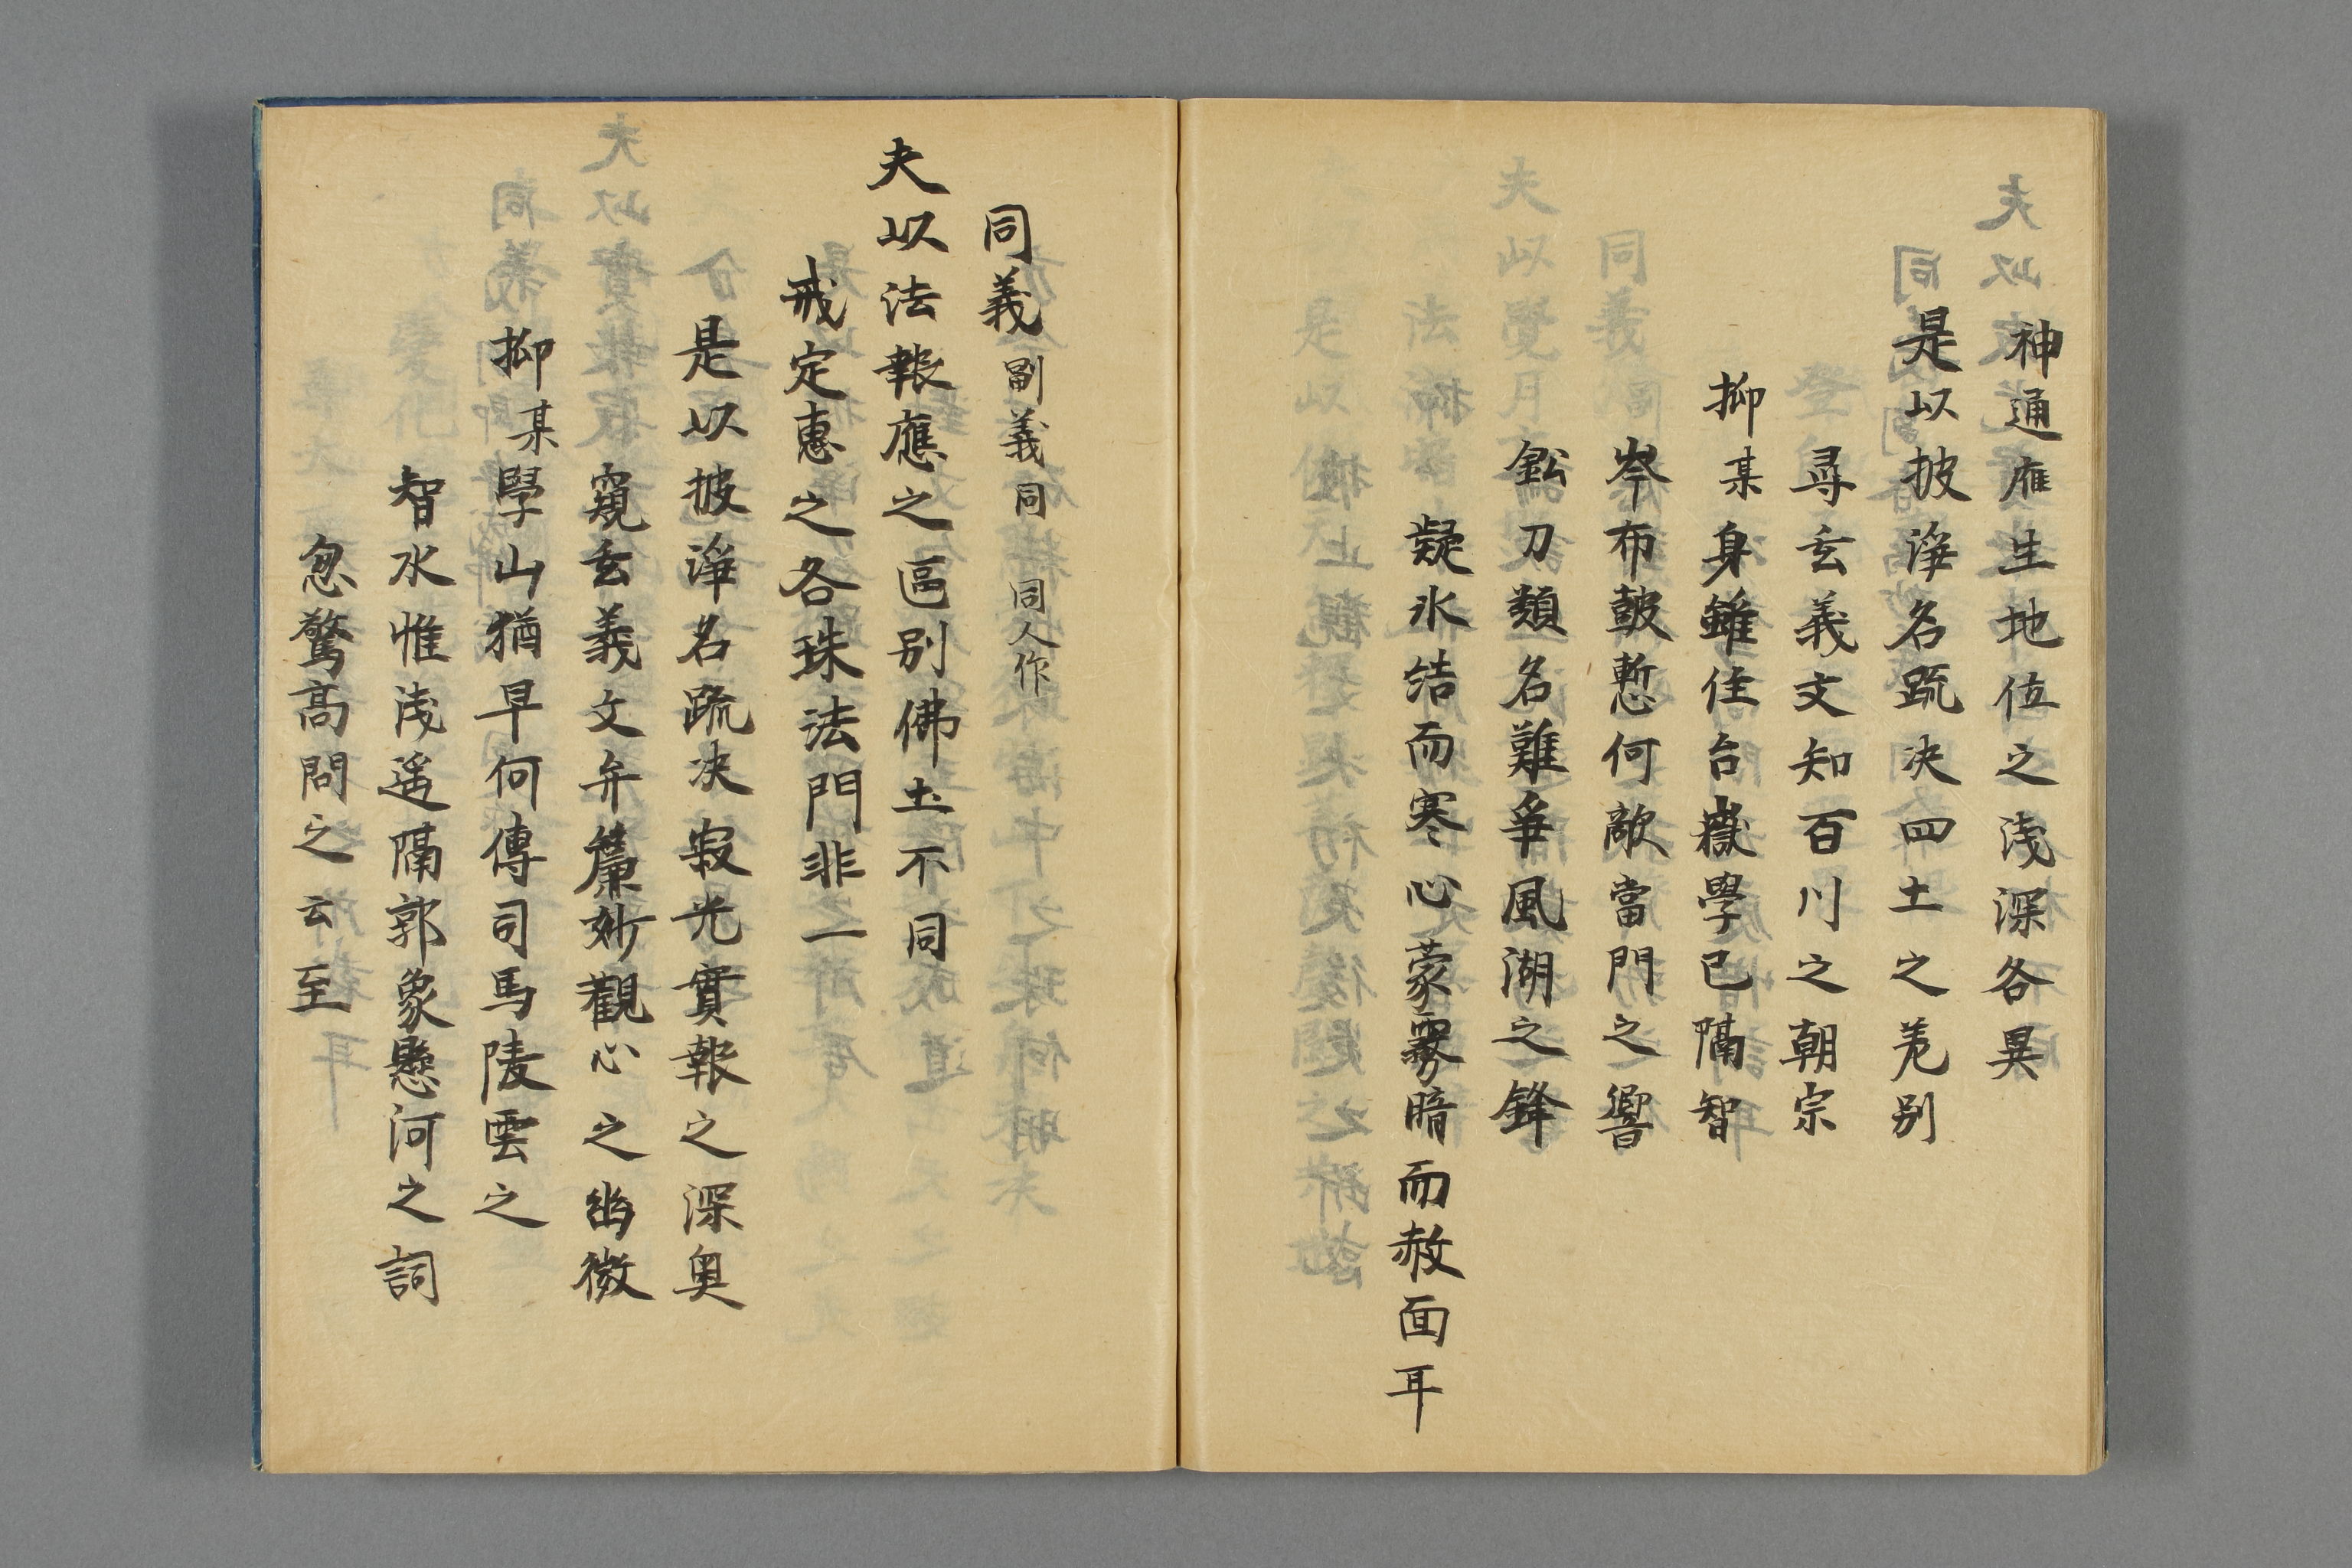 神通應生地位之浅深各異
是以披淨名疏决四土之差别
尋玄義文知百川之朝宗
抑某身雖住台嶽學已隔智
岑布皷慙何敵當門之響
鈆刀類名難爭風湖之鋒
凝氷結而寒心蒙霧暗而赦面耳
同義副義同 同人作
夫以法報應之區别佛土不同
戒定惠之各珠法門非一
是以披淨名疏决寂光實報之深奥
窺玄義文弁簾妙觀心之幽微
抑某學山猶早何傳司馬陵雲之
智水惟浅遥隔郭象懸河之詞
忽驚高問之云至